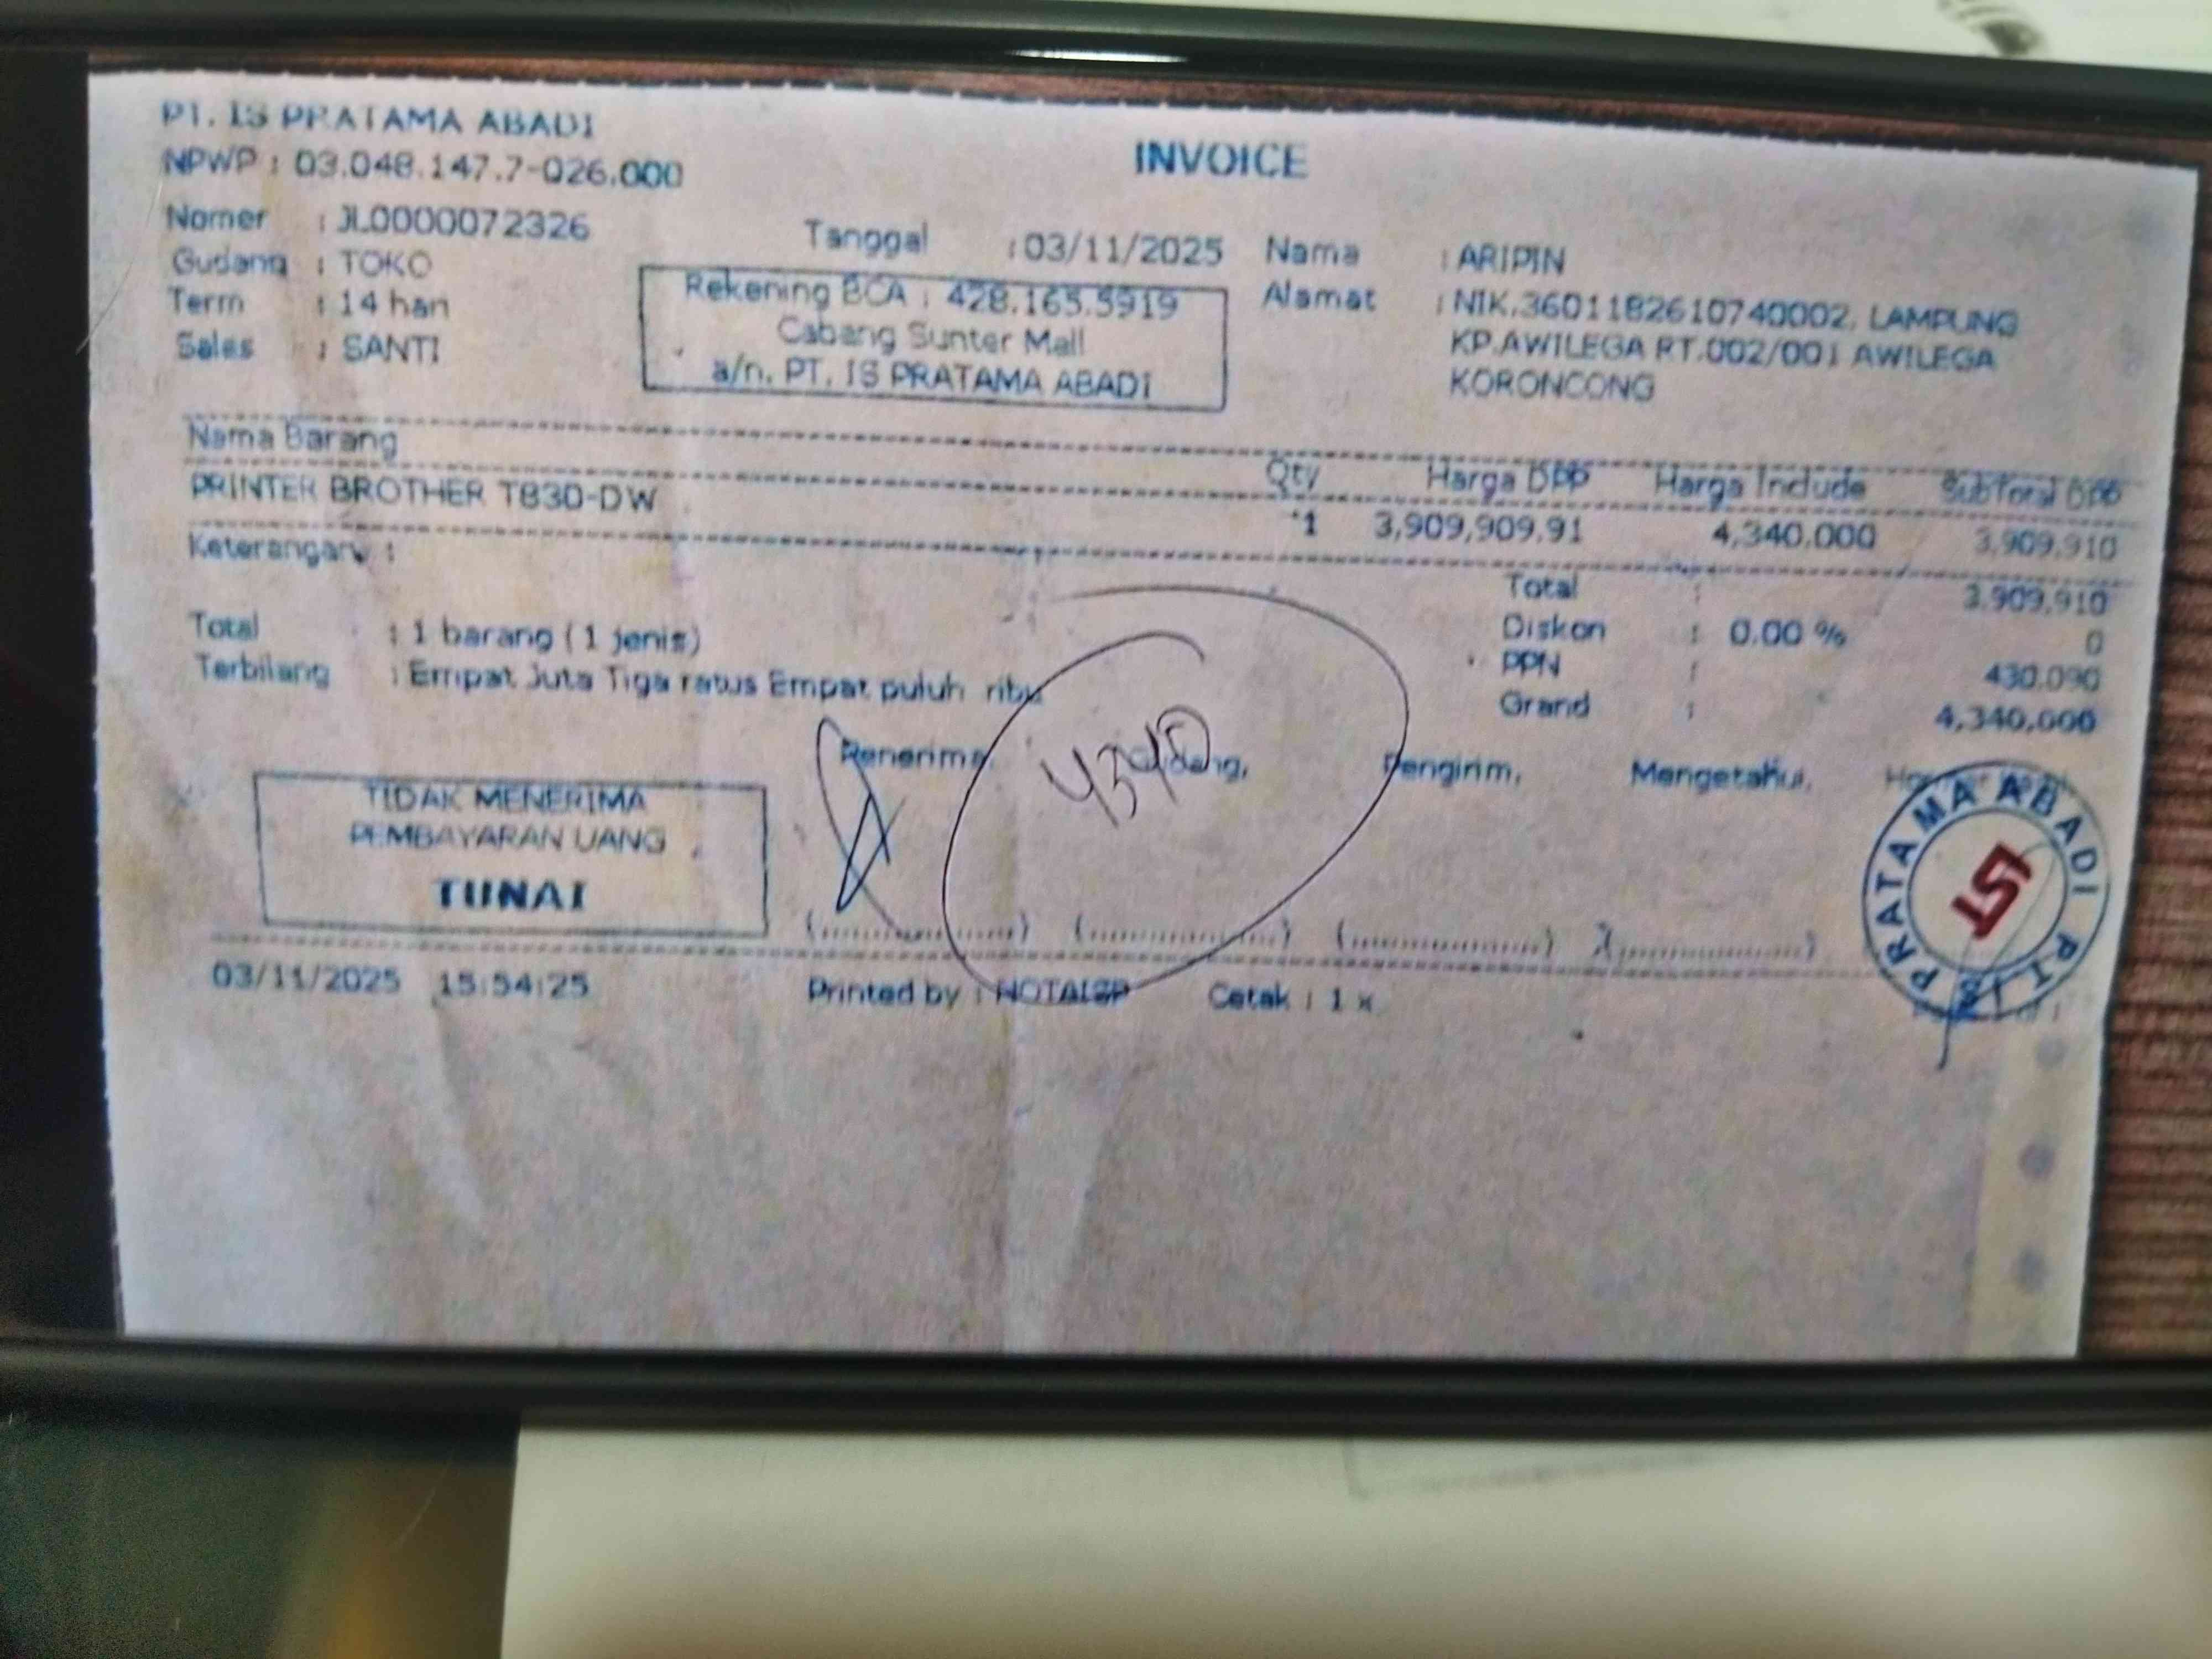 PT. IS PRATAMA ABADI
NPWP : 03.048.147.7-026.000
INVOICE
Nomer : JL0000072326
Gudang : TOKO
Term : 14 hari
Sales : SANTI
Tanggal : 03/11/2025
Rekening BCA : 428.165.5919
Cabang Sunter Mall
a/n. PT. IS PRATAMA ABADI
Nama : ARIPIN
Alamat : NIK.3601182610740002, LAMPUNG
KP.AWILEGA RT.002/001 AWILEGA
KORONCONG
Nama Barang Qty Harga DPP Harga Include SubTotal DPP
PRINTER BROTHER T830-DW 1 3,909,909.91 4,340,000 3,909,910
Keterangan :
Total : 1 barang ( 1 jenis)
Terbilang : Empat Juta Tiga ratus Empat puluh ribu
Total : 3,909,910
Diskon : 0.00 % 0
PPN : 430,090
Grand : 4,340,000
TIDAK MENERIMA
PEMBAYARAN UANG
TUNAI
Penerima, Gudang, Pengirim, Mengetahui,
4340
(....................) (....................) (....................) (....................)
PRATAMA ABADI
PT. IS
ISP
03/11/2025 15:54:25 Printed by : NOTAISP Cetak : 1 x